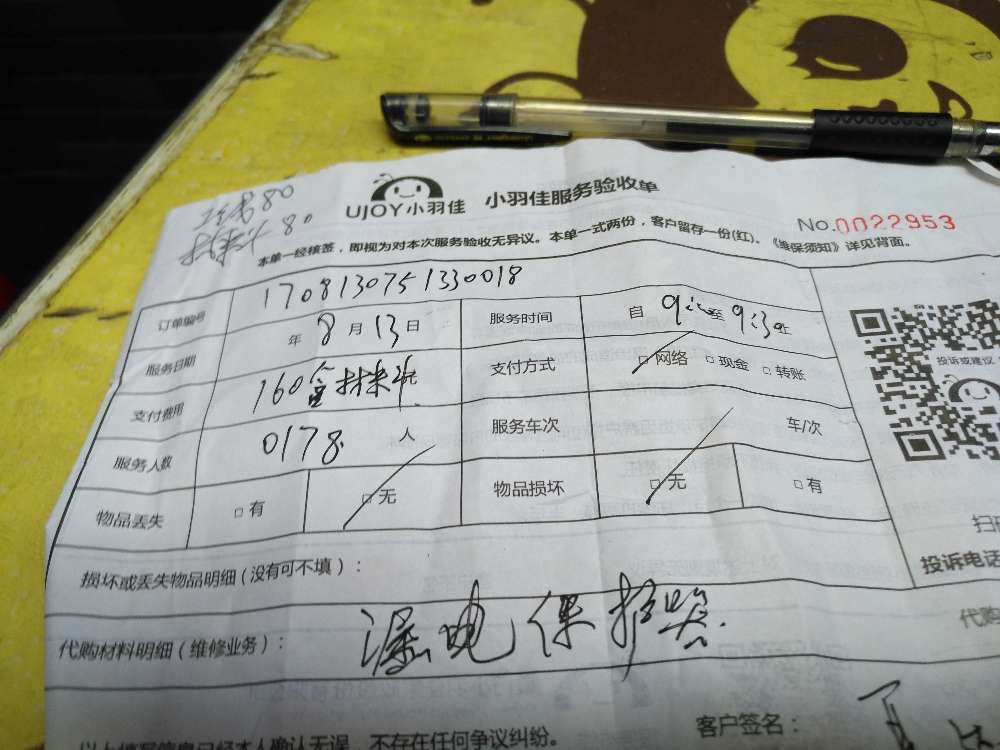 80
材料 80
UJOY小羽佳 小羽佳服务验收单
No.0022953
本单一经核签，即视为对本次服务验收无异议。本单一式两份，客户留存一份(红)。《维保须知》详见背面。
订单编号 1708130751330018
服务日期 年 8月13日 服务时间 自 9: 至 9:30止
支付费用 160含材料 支付方式 □网络 □现金 □转账
服务人数 0178 人 服务车次 车/次
物品丢失 □有 □无 物品损坏 □无 □有
投诉或建议
扫
投诉电话
损坏或丢失物品明细(没有可不填)：
代购材料明细(维修业务)： 漏电保护器
代购
客户签名：
以上填写信息已经本人确认无误，不存在任何争议纠纷。